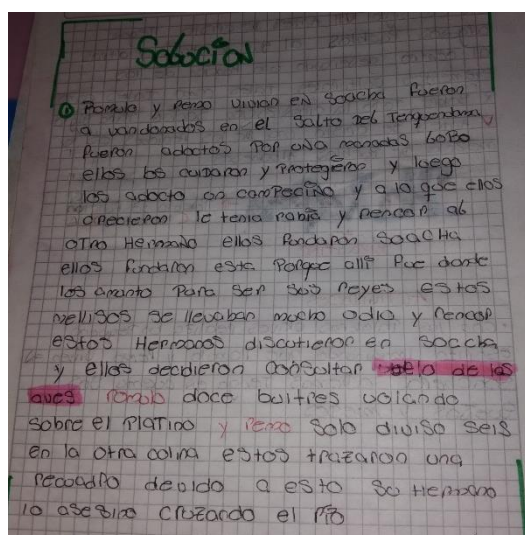 Solución
① Romulo y Remo vivian en Soacha fueron
a vandonados en el Salto del Tenquendama
fueron adoctos Por una manadas lobo
ellos los cuidaron y Protegieron y luego
los adocto un campecino y a lo que ellos
crecieron le tenia rabia y rencor al
otro Hermano ellos fundaron SoacHa
ellos fundaron esta Porque alli fue donde
los amanto Para ser sus reyes estos
mellisos se llevaban mucho odio y rencor
estos Hermanos discutieron en Soacha
y ellos decidieron consultar vuelo de las
aves romulo doce buitres volando
sobre el PlaTino y remo solo diviso seis
en la otra colina estos trazaron una
recuadro devido a esto su Hermano
lo asesino cruzando el rio